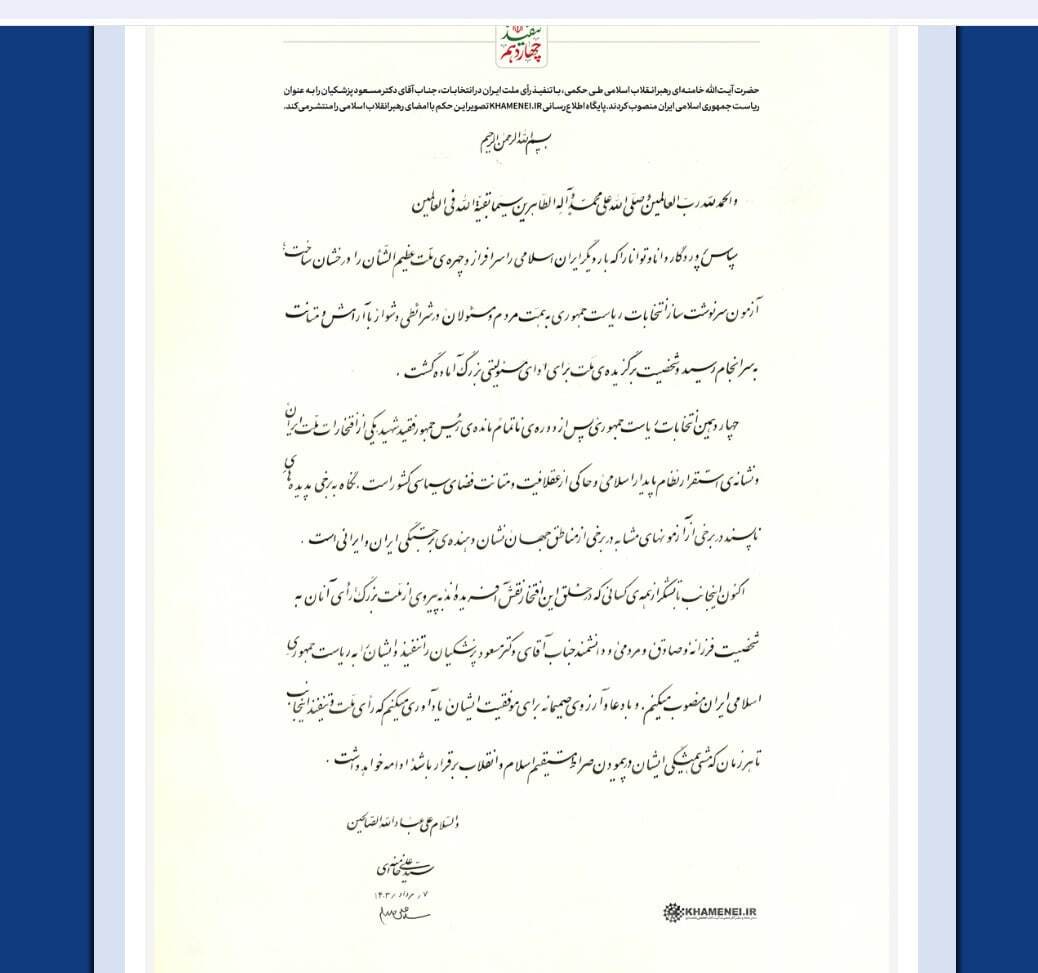 تنفیذ
چهاردهم
حضرت آیت‌الله خامنه‌ای رهبر انقلاب اسلامی طی حکمی، با تنفیذ رأی ملت ایران در انتخابات، جناب آقای دکتر مسعود پزشکیان را به عنوان
ریاست جمهوری اسلامی ایران منصوب کردند. پایگاه اطلاع‌رسانی KHAMENEI.IR تصویر این حکم با امضای رهبر انقلاب اسلامی را منتشر می‌کند.
بسم الله الرحمن الرحیم
والحمدلله ربّ العالمین و صلی الله علی محمد و آله الطاهرین سیما بقیة الله فی العالمین
سپاس پروردگار دانا و توانا را که بار دیگر ایران اسلامی را سرافراز و چهره‌ی ملت عظیم‌الشأن را درخشان ساخت؛
آزمون سرنوشت‌ساز انتخابات ریاست جمهوری به همت مردم و مسئولان در شرائطی دشوار با آرامش و متانت
به سرانجام رسید و شخصیت برگزیده‌ی ملت برای ادای مسئولیتی بزرگ آماده گشت.
چهاردهمین انتخابات ریاست جمهوری پس از دوره‌ی ناتمام مانده‌ی رئیس جمهور فقید شهید یکی از افتخارات ملت ایران
و نشانه‌ی استقرار نظام پایدار اسلامی و حاکی از عقلانیت و متانت فضای سیاسی کشور است. نگاه به برخی پدیده‌های
ناپسند در برخی از آزمونهای مشابه در برخی از مناطق جهان نشان دهنده‌ی برجستگی ایران و ایرانی است.
اکنون اینجانب با تشکر از همه‌ی کسانی که در خلق این افتخار نقش آفریده‌اند به پیروی از ملت بزرگ رأی آنان به
شخصیت فرزانه و صادق و مردمی و دانشمند جناب آقای دکتر مسعود پزشکیان را تنفیذ و ایشان را به ریاست جمهوری
اسلامی ایران منصوب میکنم. و با دعا و آرزوی صمیمانه برای موفقیت ایشان یادآوری میکنم که رأی ملت و تنفیذ اینجانب
تا هر زمان که مشی همیشگی ایشان در پیمودن صراط مستقیم اسلام و انقلاب برقرار باشد ادامه خواهد داشت.
والسلام علی عباد الله الصالحین
سیّد علی خامنه‌ای
۷ / مرداد / ۱۴۰۳
KHAMENEI.IR